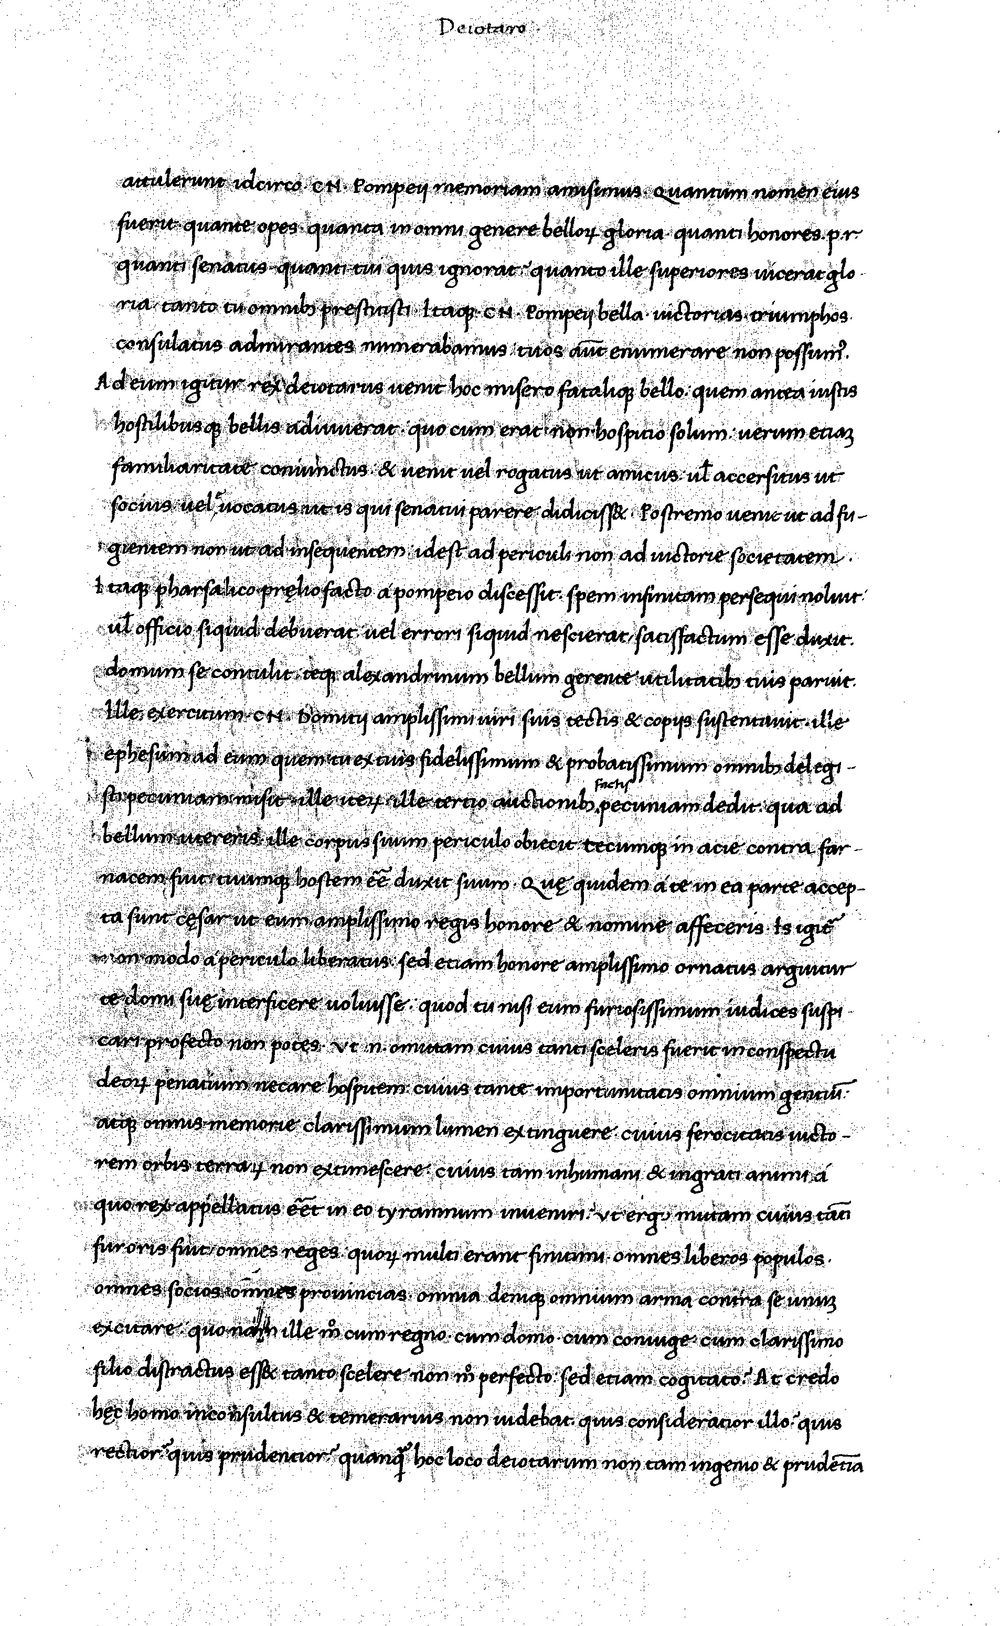 Deiotaro.
attulerunt idcirco. CN. Pompeij memoriam amisimus. Quantum nomen eius
fuerit. quante opes. quanta in omni genere belloꝝ gloria. quanti honores. p. r.
quanti senatus. quanti tui quis ignorat? quanto ille superiores uicerat glo
ria. tanto tu omnibꝫ prestitisti. Itaqꝫ. CN. Pompeij bella. uictorias. triumphos.
consulatus admirantes numerabamus. tuos aūt enumerare non possumꝰ.
Ad eum igitur rex deiotarus uenit hoc misero fataliqꝫ bello. quem antea iustis
hostilibusqꝫ bellis adiuuerat. quo cum erat non hospitio solum. uerum etiaꝫ
familiaritate coniunctus. & uenit uel rogatus ut amicus. ul̄ accersitus ut
socius. uel euocatus ut is qui senatui parere didiciss&. Postremo uenit ut ad fu-
gientem non ut ad insequentem. idest ad periculi non ad uictorie societatem.
Itaqꝫ pharsalico pręlio facto a pompeio discessit. spem infinitam persequi noluit.
ul̄ officio siquid debuerat. uel errori siquid nescierat, satisfactum esse duxit.
domum se contulit. teqꝫ alexandrinum bellum gerente utilitatibꝫ tuis paruit.
Ille exercitum. CN. Domitij amplissimi uiri suis tectis & copijs sustentauit. ille
ephesum ad eum quem tu ex tuis fidelissimum & probatissimum omnibꝫ delegi-
sti pecuniam misit. ille iteꝝ. ille tertio auctionibꝫ factis pecuniam dedit. qua ad
bellum utereris. ille corpus suum periculo obiecit. tecumqꝫ in acie contra far-
nacem fuit. tuumqꝫ hostem eē duxit suum. Quę quidem a te in ea parte accep-
ta sunt cęsar ut eum amplissimo regis honore & nomine affeceris. Is igit᷑
non modo a periculo liberatus. sed etiam honore amplissimo ornatus arguitur
te domi suę interficere uoluisse. quod tu nisi eum furiosissimum iudices suspi-
cari profecto non potes. Vt .n. omittam cuius tanti sceleris fuerit in conspectu
deoꝝ penatium necare hospitem. cuius tante importunitatis omnium gentiū.
atqꝫ omnis memorie clarissimum lumen extinguere. cuius ferocitatis uicto-
rem orbis terraꝝ non extimescere. cuius tam inhumani & ingrati animi a
quo rex appellatus eēt in eo tyrannum inueniri. Vt ergo mittam cuius tāti
furoris fuit. omnes reges. quoꝝ multi erant finitimi. omnes liberos populos.
omnes socios. omnes prouincias. omnia deniqꝫ omnium arma contra se unuꝫ
excitare. quonam ille m̊ cum regno. cum domo. cum coniuge. cum clarissimo
filio distractus ess& tanto scelere non m̊ perfecto. sed etiam cogitato? At credo
hęc homo inconsultus & temerarius non uidebat. quis consideratior illo? quis
rectior? quis prudentior? quanqꝫ hoc loco deiotarum non tam ingenio & prudētia